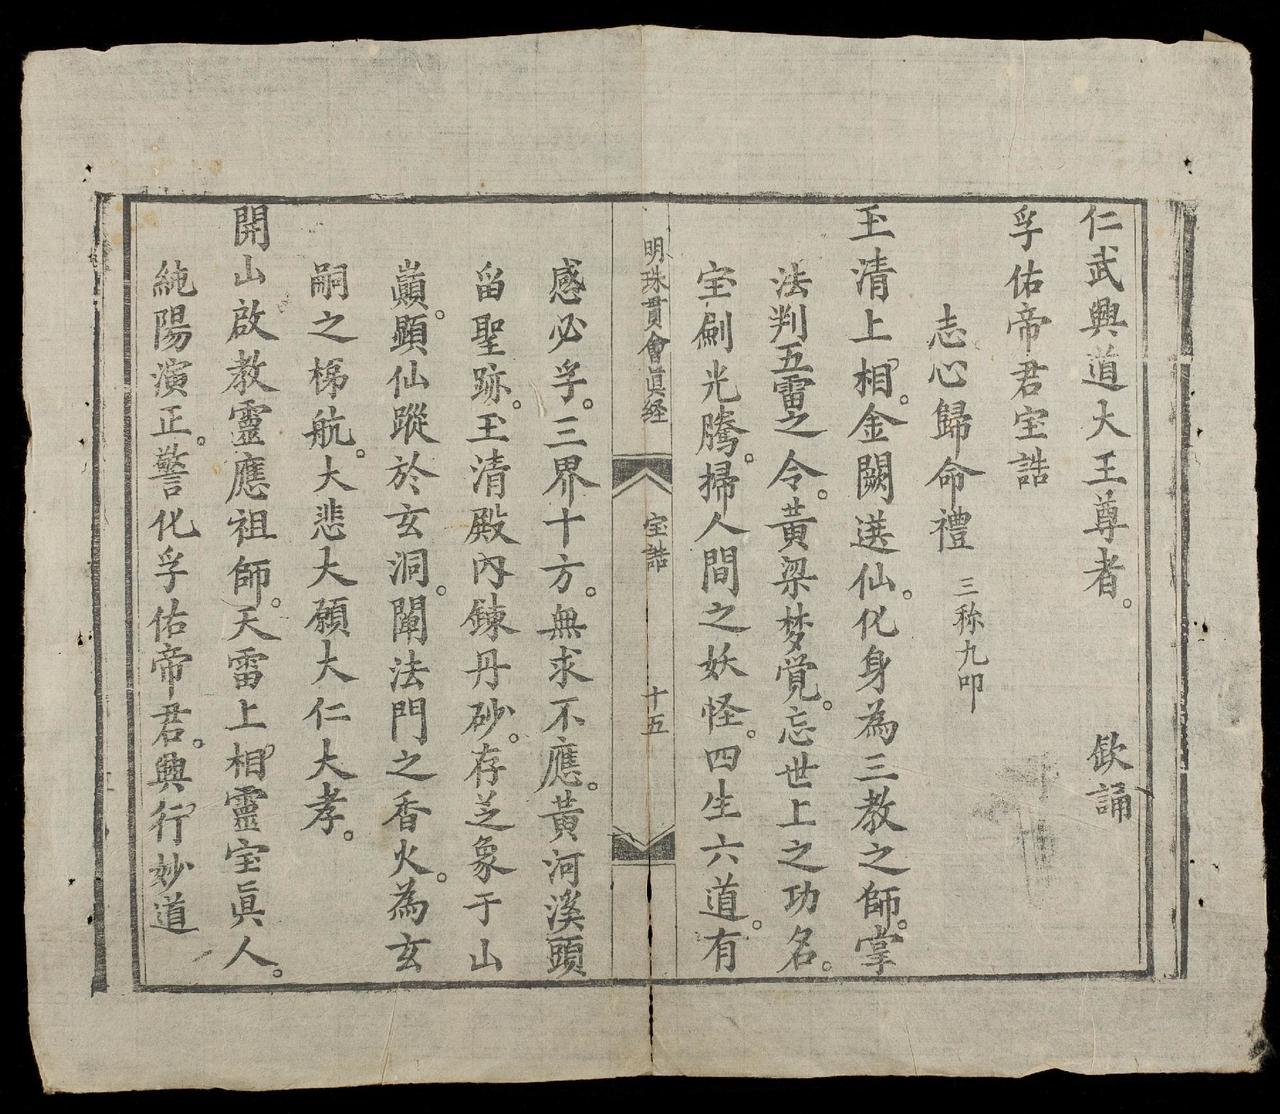 仁武興道大王尊者。 欽誦
孚佑帝君宝誥
志心歸命禮 三称九叩
玉清上相。金闕選仙。化身為三教之師。掌
法判五雷之令。黃梁梦覚。忘世上之功名。
宝劍光騰。掃人間之妖怪。四生六道。有
明珠貫會眞経 宝誥 十五
感必孚。三界十方。無求不應。黃河溪頭
留聖跡。玉清殿内鍊丹砂。存芝象于山
巔。顕仙蹤於玄洞。闡法門之香火。為玄
嗣之梯航。大悲大願大仁大孝。
開山啟教靈應祖師。天雷上相靈宝眞人。
純陽演正。警化孚佑帝君。興行妙道